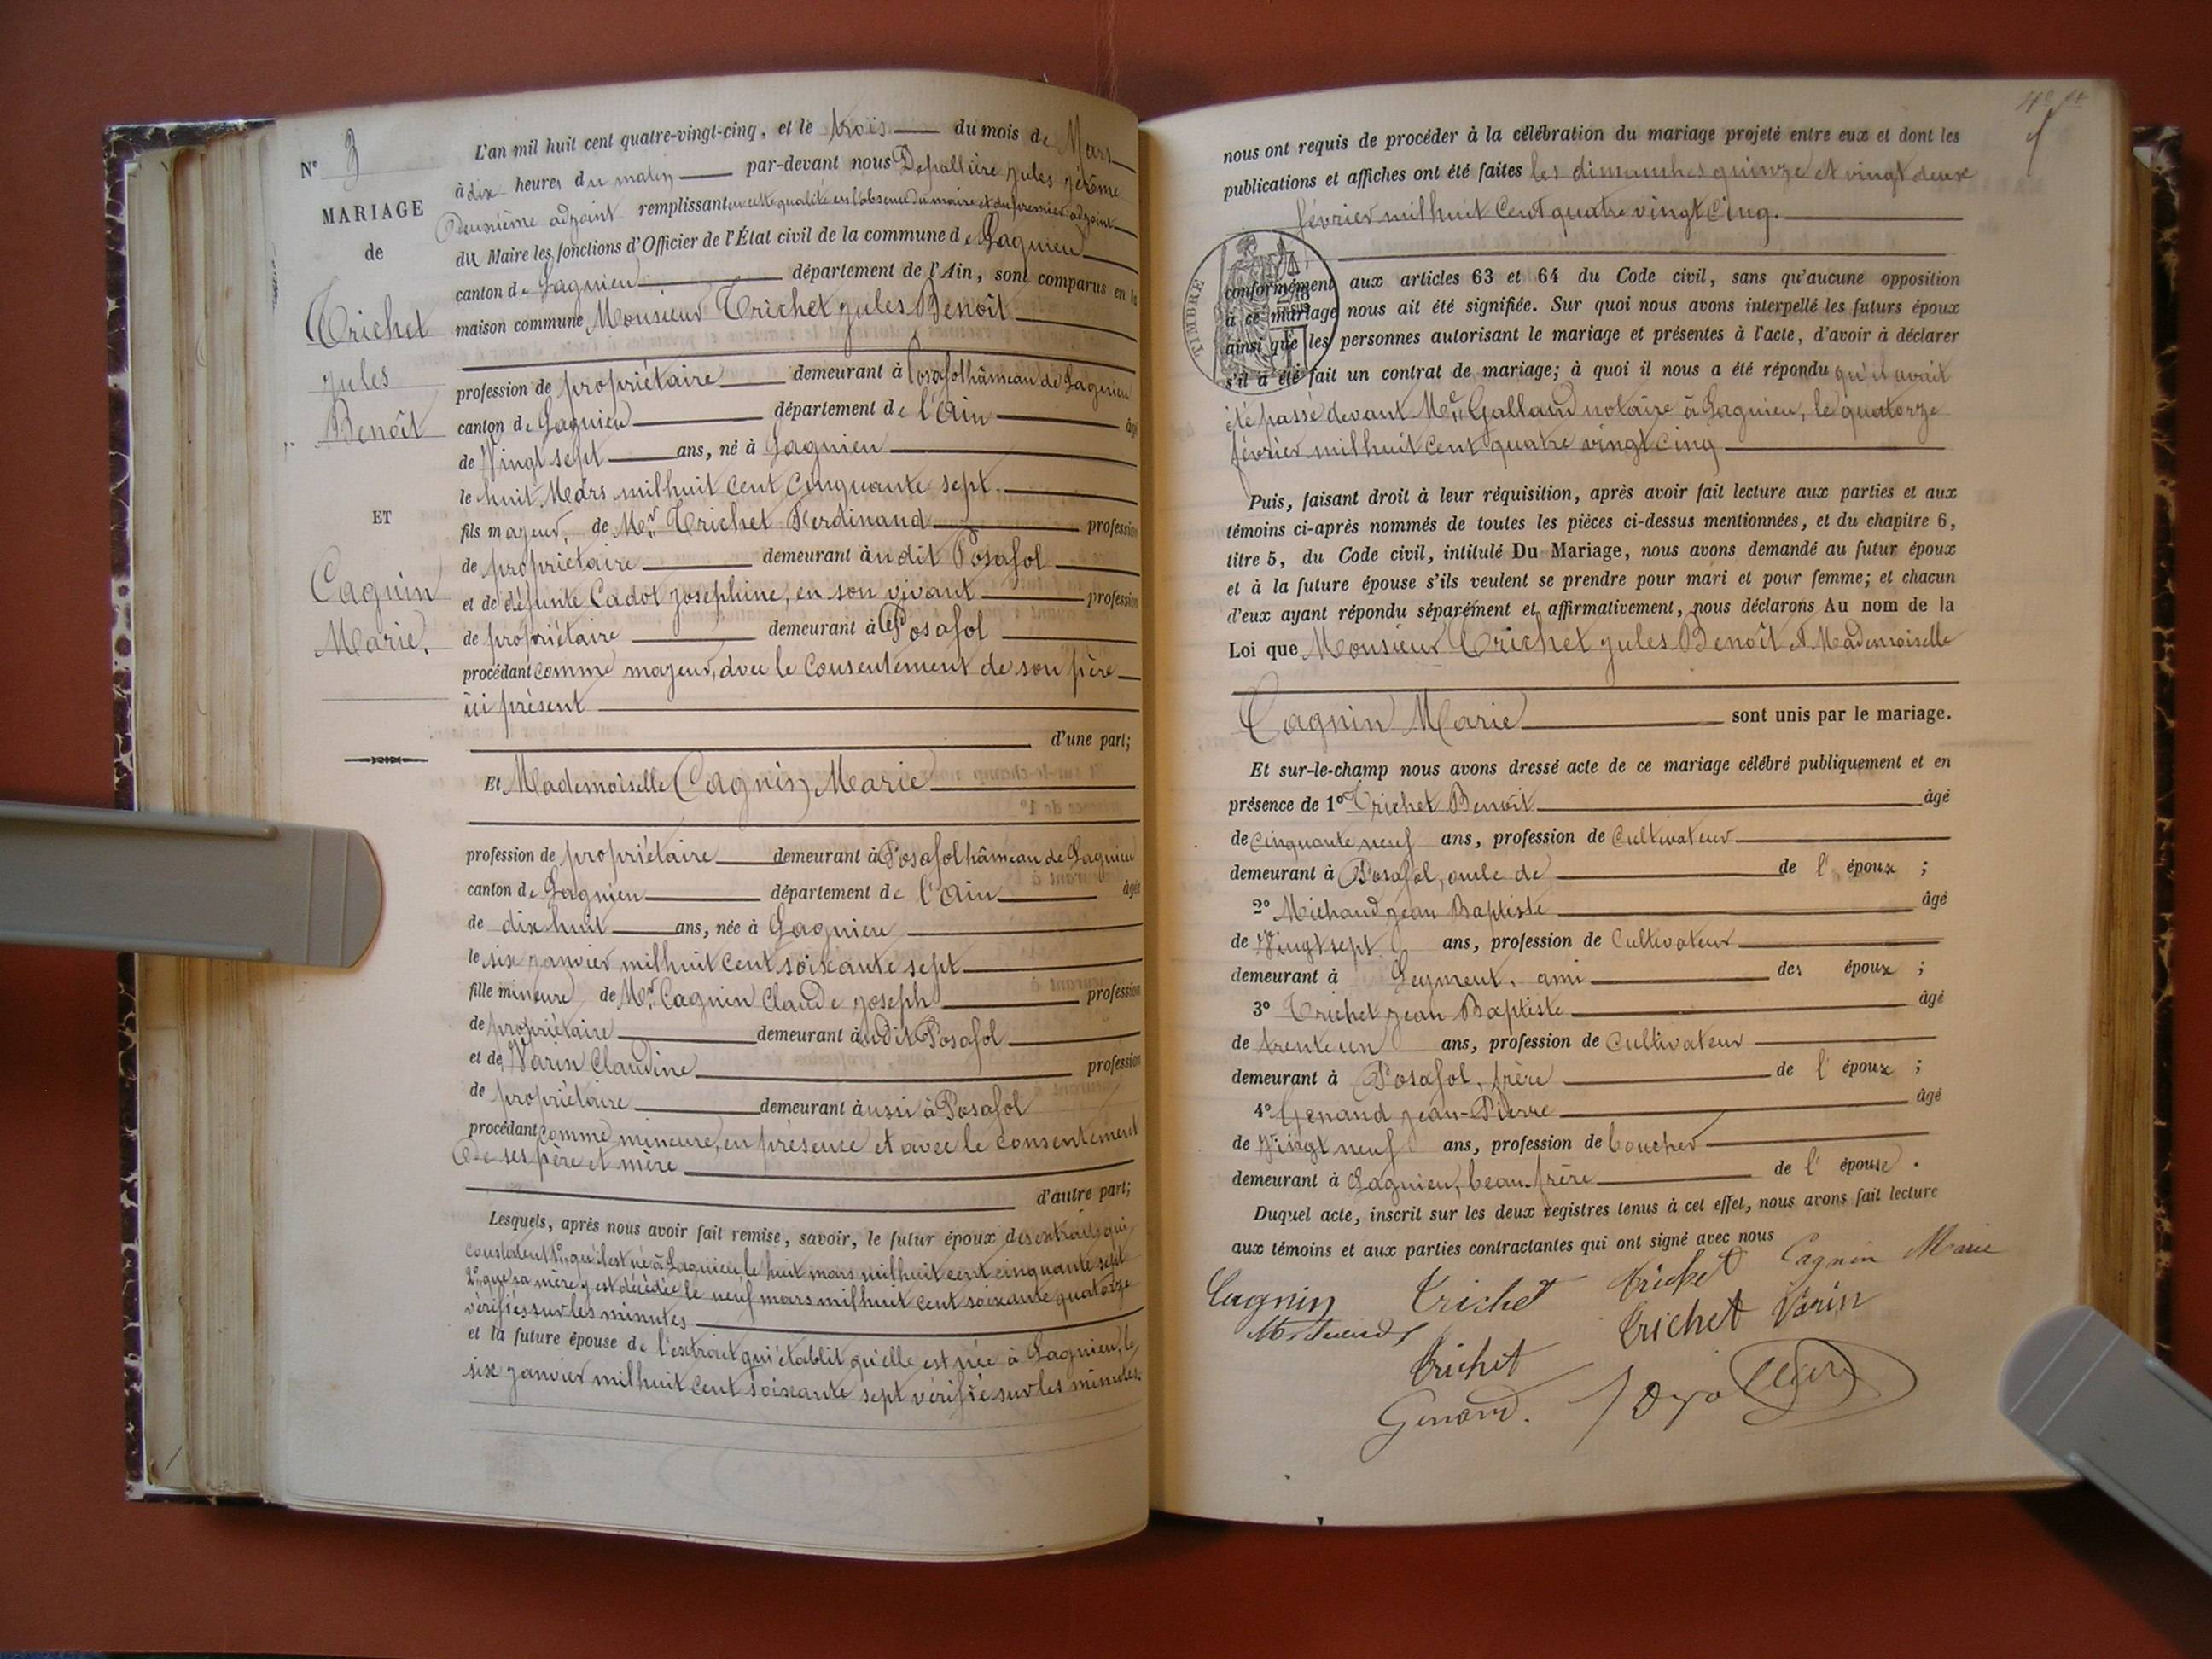 N° 3
MARIAGE
de
Trichet
Jules
Benoît
ET
Cagnin
Marie.
L'an mil huit cent quatre-vingt-cinq, et le trois du mois de Mars
à dix heures du matin par-devant nous Depallière Jules Jérôme
Deuxième adjoint remplissant en cette qualité en l'absence du maire et du premier adjoint
du Maire les fonctions d'Officier de l'État civil de la commune de Lagnieu
canton de Lagnieu département de l'Ain, sont comparus en la
maison commune Monsieur Trichet Jules Benoît
profession de propriétaire demeurant à Posafol hâmeau de Lagnieu
canton de Lagnieu département de l'Ain âgé
de Vingt sept ans, né à Lagnieu
le huit Mars mil huit cent cinquante sept
fils majeur, de Mr. Trichet Ferdinand profession
de propriétaire demeurant à udit Posafol
et de défunte Cadot Joséphine, en son vivant profession
de propriétaire demeurant à Posafol
procédant comme majeur, avec le consentement de son père
ici présent
d'une part;
Et Mademoiselle Cagnin Marie
profession de propriétaire demeurant à Posafol hâmeau de Lagnieu
canton de Lagnieu département de l'Ain âgée
de dix huit ans, née à Lagnieu
le six janvier mil huit cent soixante sept
fille mineure de Mr. Cagnin Claude Joseph profession
de propriétaire demeurant audit Posafol
et de Varin Claudine profession
de propriétaire demeurant aussi à Posafol
procédant comme mineure, en présence et avec le consentement
de ses père et mère
d'autre part;
Lesquels, après nous avoir fait remise, savoir, le futur époux des extraits qui
constatent 1° qu'il est né à Lagnieu le huit mars mil huit cent cinquante sept
2° que sa mère y est décédée le neuf mars mil huit cent soixante quatorze
vérifiés sur les minutes
et la future épouse de l'extrait qui établit qu'elle est née à Lagnieu, le
six janvier mil huit cent soixante sept vérifié sur les minutes.
nous ont requis de procéder à la célébration du mariage projeté entre eux et dont les
publications et affiches ont été faites les dimanches quinze et vingt deux
février mil huit cent quatre vingt cinq.
TIMBRE
conformément aux articles 63 et 64 du Code civil, sans qu'aucune opposition
à ce mariage nous ait été signifiée. Sur quoi nous avons interpellé les futurs époux
ainsi que les personnes autorisant le mariage et présentes à l'acte, d'avoir à déclarer
s'il a été fait un contrat de mariage; à quoi il nous a été répondu qu'il avait
été passé devant Me. Galland notaire à Lagnieu, le quatorze
février mil huit cent quatre vingt cinq
Puis, faisant droit à leur réquisition, après avoir fait lecture aux parties et aux
témoins ci-après nommés de toutes les pièces ci-dessus mentionnées, et du chapitre 6,
titre 5, du Code civil, intitulé Du Mariage, nous avons demandé au futur époux
et à la future épouse s'ils veulent se prendre pour mari et pour femme; et chacun
d'eux ayant répondu séparément et affirmativement, nous déclarons Au nom de la
Loi que Monsieur Trichet Jules Benoît et Mademoiselle
Cagnin Marie sont unis par le mariage.
Et sur-le-champ nous avons dressé acte de ce mariage célébré publiquement et en
présence de 1° Trichet Benoît âgé
de cinquante neuf ans, profession de Cultivateur
demeurant à Posafol, oncle de de l'époux ;
2° Michaud Jean Baptiste âgé
de Vingt sept ans, profession de Cultivateur
demeurant à Leyment, ami des époux ;
3° Trichet Jean Baptiste âgé
de trente un ans, profession de Cultivateur
demeurant à Posafol, frère de l'époux ;
4° Genand Jean-Pierre âgé
de Vingt neuf ans, profession de boucher
demeurant à Lagnieu, beau-frère de l'épouse.
Duquel acte, inscrit sur les deux registres tenus à cet effet, nous avons fait lecture
aux témoins et aux parties contractantes qui ont signé avec nous
Cagnin Marie
Cagnin Trichet Trichet
Trichet Varin
Trichet
Genand.